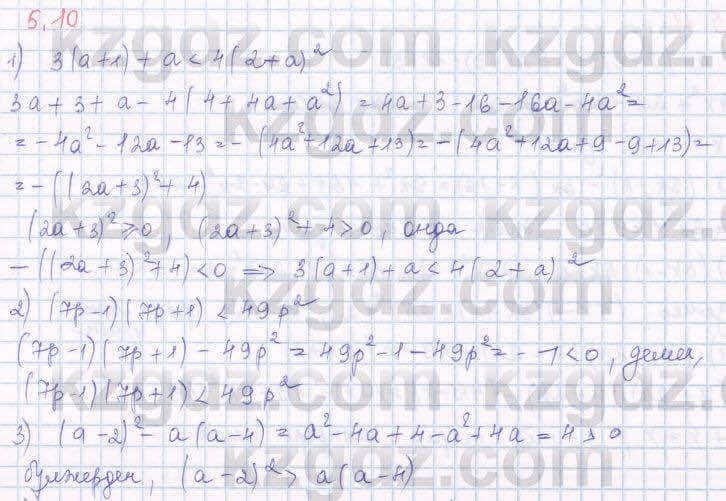 5.10
1) 3(a+1)+a<4(2+a)²
3a+3+a-4(4+4a+a²)=4a+3-16-16a-4a²=
=-4a²-12a-13=-(4a²+12a+13)=-(4a²+12a+9-9+13)=
=-((2a+3)²+4)
(2a+3)²≥0, (2a+3)²+4>0, онда
-((2a+3)²+4)<0 => 3(a+1)+a<4(2+a)²
2) (7p-1)(7p+1)<49p²
(7p-1)(7p+1)-49p²=49p²-1-49p²=-1<0, демек,
(7p-1)(7p+1)<49p²
3) (a-2)²-a(a-4)=a²-4a+4-a²+4a=4>0
бұлжерден, (a-2)²>a(a-4)
kzgdz.com